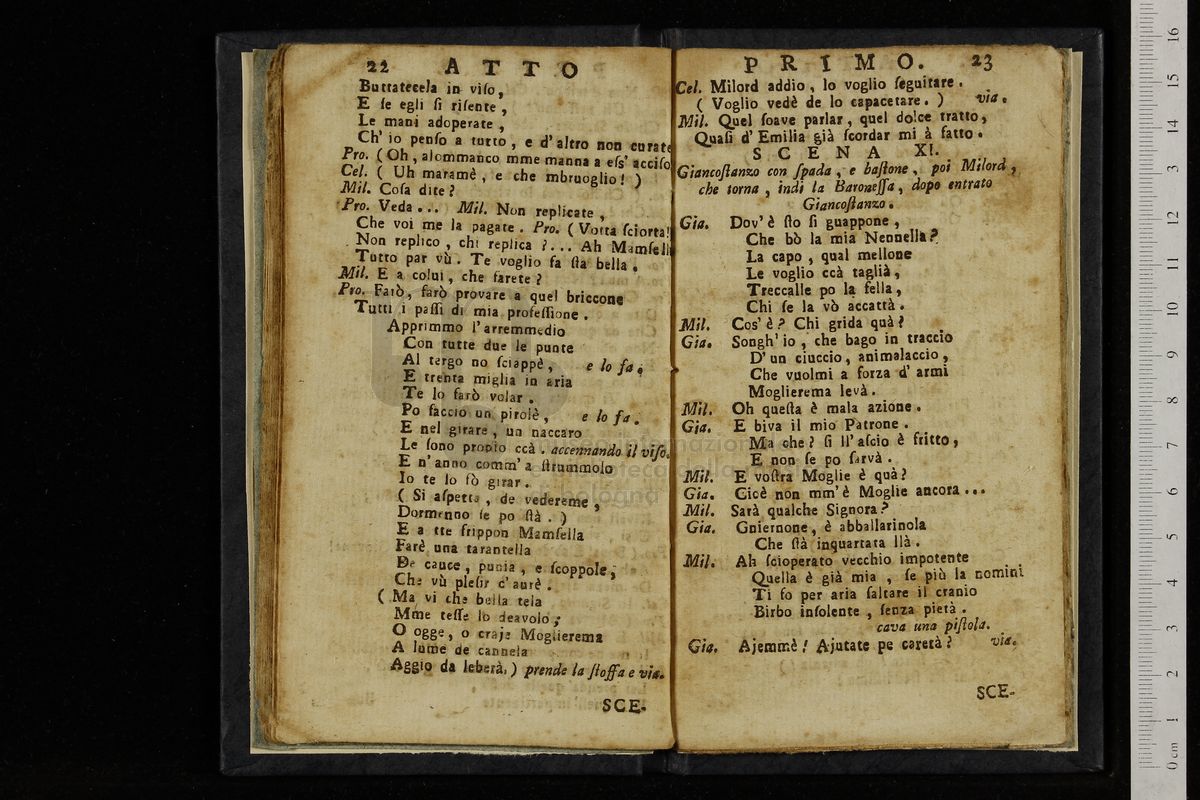 22 ATTO
Buttatecela in viſo,
E ſe egli ſi riſente,
Le mani adoperate,
Ch' io penſo a tutto, e d' altro non curate
Pro. (Oh, alommanco mme manna a eſs' acciſo
Cel. (Uh maramè, e che mbruoglio!)
Mil. Coſa dite?
Pro. Veda... Mil. Non replicate,
Che voi me la pagate. Pro. (Votta ſciorta!
Non replico, chi replica?... Ah Mamſell
Tutto par vù. Te voglio fa ſta bella.
Mil. E a colui, che farete?
Pro. Farò, farò provare a quel briccone
Tutti i paſſi di mia profeſſione.
Apprimmo l'arremmedio
Con tutte due le punte
Al tergo no ſciappè, e lo fa.
E trenta miglia in aria
Te lo farò volar.
Po faccio un pirolè, e lo fa.
E nel girare, un naccaro
Le ſono pronto ccà. accennando il viſo.
E n'anno comm' a ſtrummolo
Io te lo fò girar.
(Si aſpetta, de vedereme,
Dormenno ſe po ſtà.)
E a tte frippon Mamſella
Farè una tarantella
De cauce, punia, e ſcoppole,
Che vù pleſir c'aurè.
(Ma vi che bella tela
Mme teſſe lo deavolo;
O ogge, o craje Moglierema
A lume de cannela
Aggio da leberà.) prende la ſtoffa e via.
SCE-
PRIMO. 23
Cel. Milord addio, lo voglio ſeguitare.
(Voglio vedè de lo capacetare.) via.
Mil. Quel ſoave parlar, quel dolce tratto,
Quaſi d' Emilia già ſcordar mi à fatto.
SCENA XI.
Giancoſtanzo con ſpada, e baſtone, poi Milord,
che torna, indi la Baroneſſa, dopo entrato
Giancoſtanzo.
Gia. Dov' è ſto ſi guappone,
Che bò la mia Nennella?
La capo, qual mellone
Le voglio ccà taglià,
Treccalle po la fella,
Chi ſe la vò accattà.
Mil. Cos' è? Chi grida quà?
Gia. Songh' io, che bago in traccio
D' un ciuccio, animalaccio,
Che vuolmi a forza d' armi
Moglierema levà.
Mil. Oh queſta è mala azione.
Gia. E biva il mio Patrone.
Ma che? ſi ll' aſcio è fritto,
E non ſe po ſarvà.
Mil. E voſtra Moglie è quà?
Gia. Cicè non mm' è Moglie ancora...
Mil. Sarà qualche Signora?
Gia. Gniernone, è abballarinola
Che ſtà inquartata llà.
Mil. Ah ſcioperato vecchio impotente
Quella è già mia, ſe più la nomini
Ti fo per aria ſaltare il cranio
Birbo inſolente, ſenza pietà.
cava una piſtola.
Gia. Ajemmè! Ajutate pe caretà? via.
SCE-